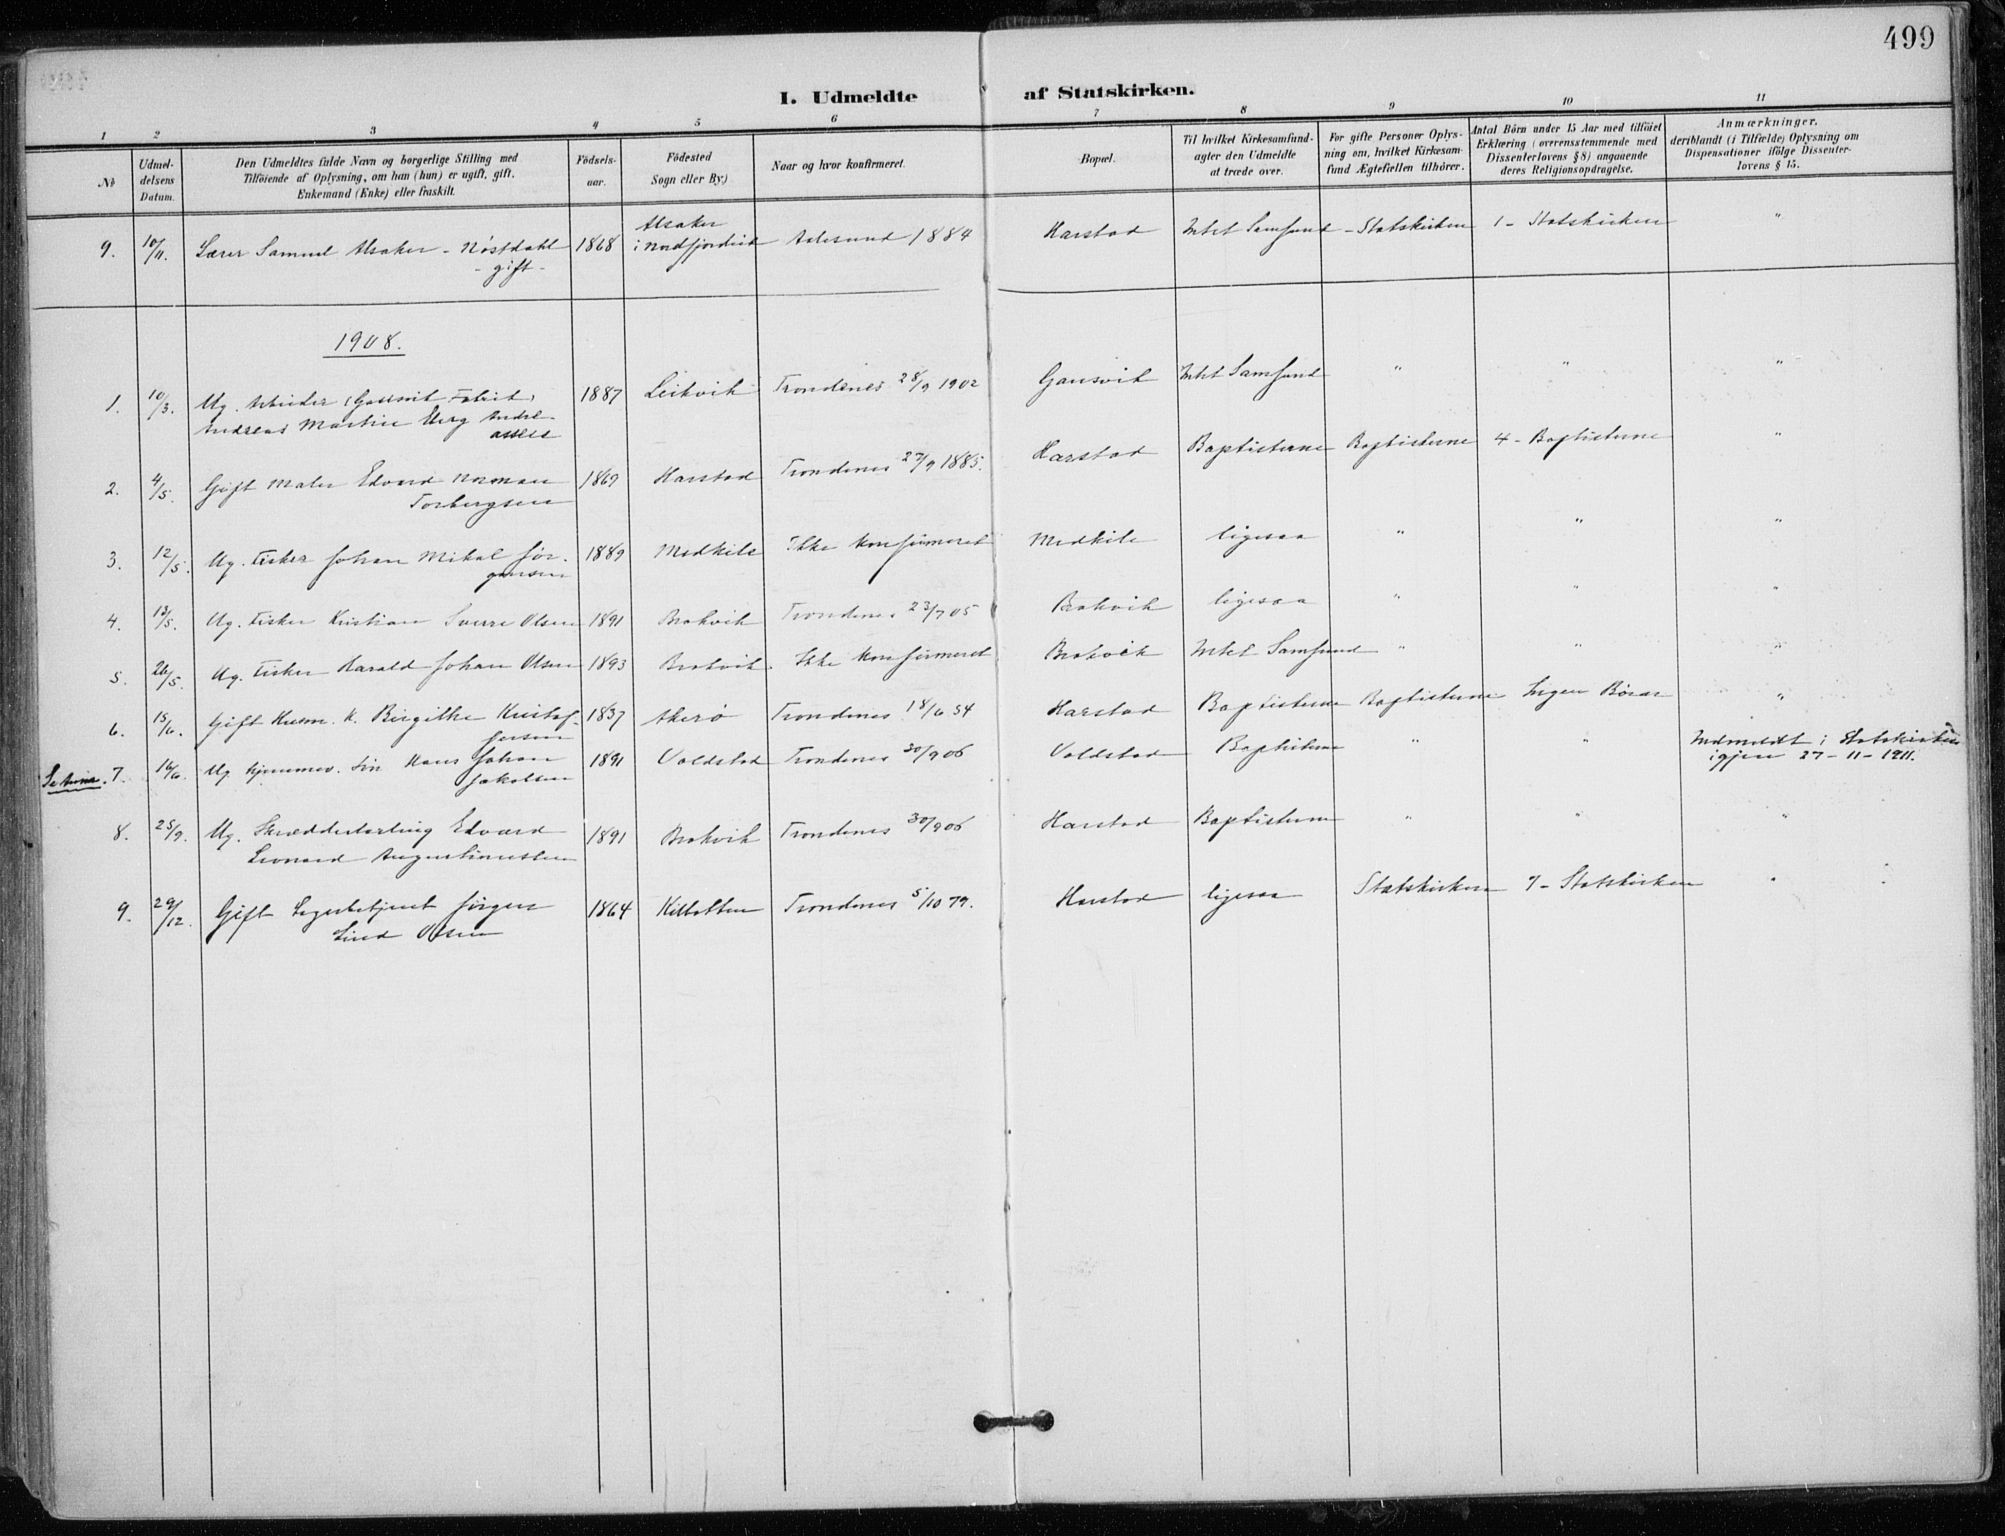 499
I. Udmeldte af Statskirken.
1 2 3 4 5 6 7 8 9 10 11
No
Udmel-
delsens
Datum.
Den Udmeldtes fulde Navn og borgerlige Stilling med
Tilföiende af Oplysning, om han (hun) er ugift, gift,
Enkemand (Enke) eller fraskilt.
Födsels-
aar.
Födested
Sogn eller By.)
Naar og hvor konfirmeret.
Bopæl.
Til hvilket Kirkesamfund
agter den Udmeldte
at træde over.
For gifte Personer Oplys-
ning om, hvilket Kirkesam-
fund Ægtefællen tilhörer.
Antal Börn under 15 Aar med tilföiet
Erklæring (overensstemmende med
Dissenterlovens § 8) angaaende
deres Religionsopdragelse.
Anmærkninger,
deriblandt (i Tilfælde) Oplysning om
Dispensationer ifölge Dissenter-
lovens § 15.
Alsaker
9. 10/11. Lærer Samuel Alsaker - Nøstdahl 1868 i Nordfjordeid Aalesund 1884 Harstad Intet Samfund - Statskirken 1 - Statskirken "
- gift -
1908.
1. 10/3. Ug. Arbeider 1887 Leikvik Trondenes 28/9 1902 Gansvik Intet Samfund " " "
Andreas Martin Berg Andre-
assen
2. 4/5. Gift Maler Edvard Norman 1869 Harstad Trondenes 27/9 1885. Harstad Baptisterne Baptisterne 4 - Baptisterne "
Torbergsen
3. 12/5. Ug. Fisker Johan Mikal Jør- 1889 Medkile Ikke konfirmeret Medkile ligesaa " " "
gensen
4. 13/5. Ug. Fisker Kristian Sverre Olsen 1891 Brokvik Trondenes 23/7 05 Brokvik ligesaa " " "
5. 26/5. Ug. Fisker Harald Johan Olsen 1893 Brokvik. Ikke konfirmeret Brokvik Intet Samfund " " "
6. 15/6. Gift Husm. K. Birgithe Kristof- 1837 Akerø Trondenes 18/6 54 Harstad Baptisterne Baptisterne Ingen Børn "
fersen
7. 16/6. Ug. Søn Hans Johan 1891 Voldstad Trondenes 30/9 06 Voldstad Baptisterne " " Indmeldt i Statskirken
Jakobsen igjen 27 - 11 - 1911.
8. 25/9. Ug. Skrædderlærling Edvard 1891 Brokvik Trondenes 30/9 06 Harstad Baptisterne " " "
Leonard Augustinussen
9. 29/12. Gift Lagerbetjent Jørgen 1864 Kilbotten Trondenes 5/10 79. Harstad ligesaa Statskirken 7 - Statskirken "
Lind Olsen